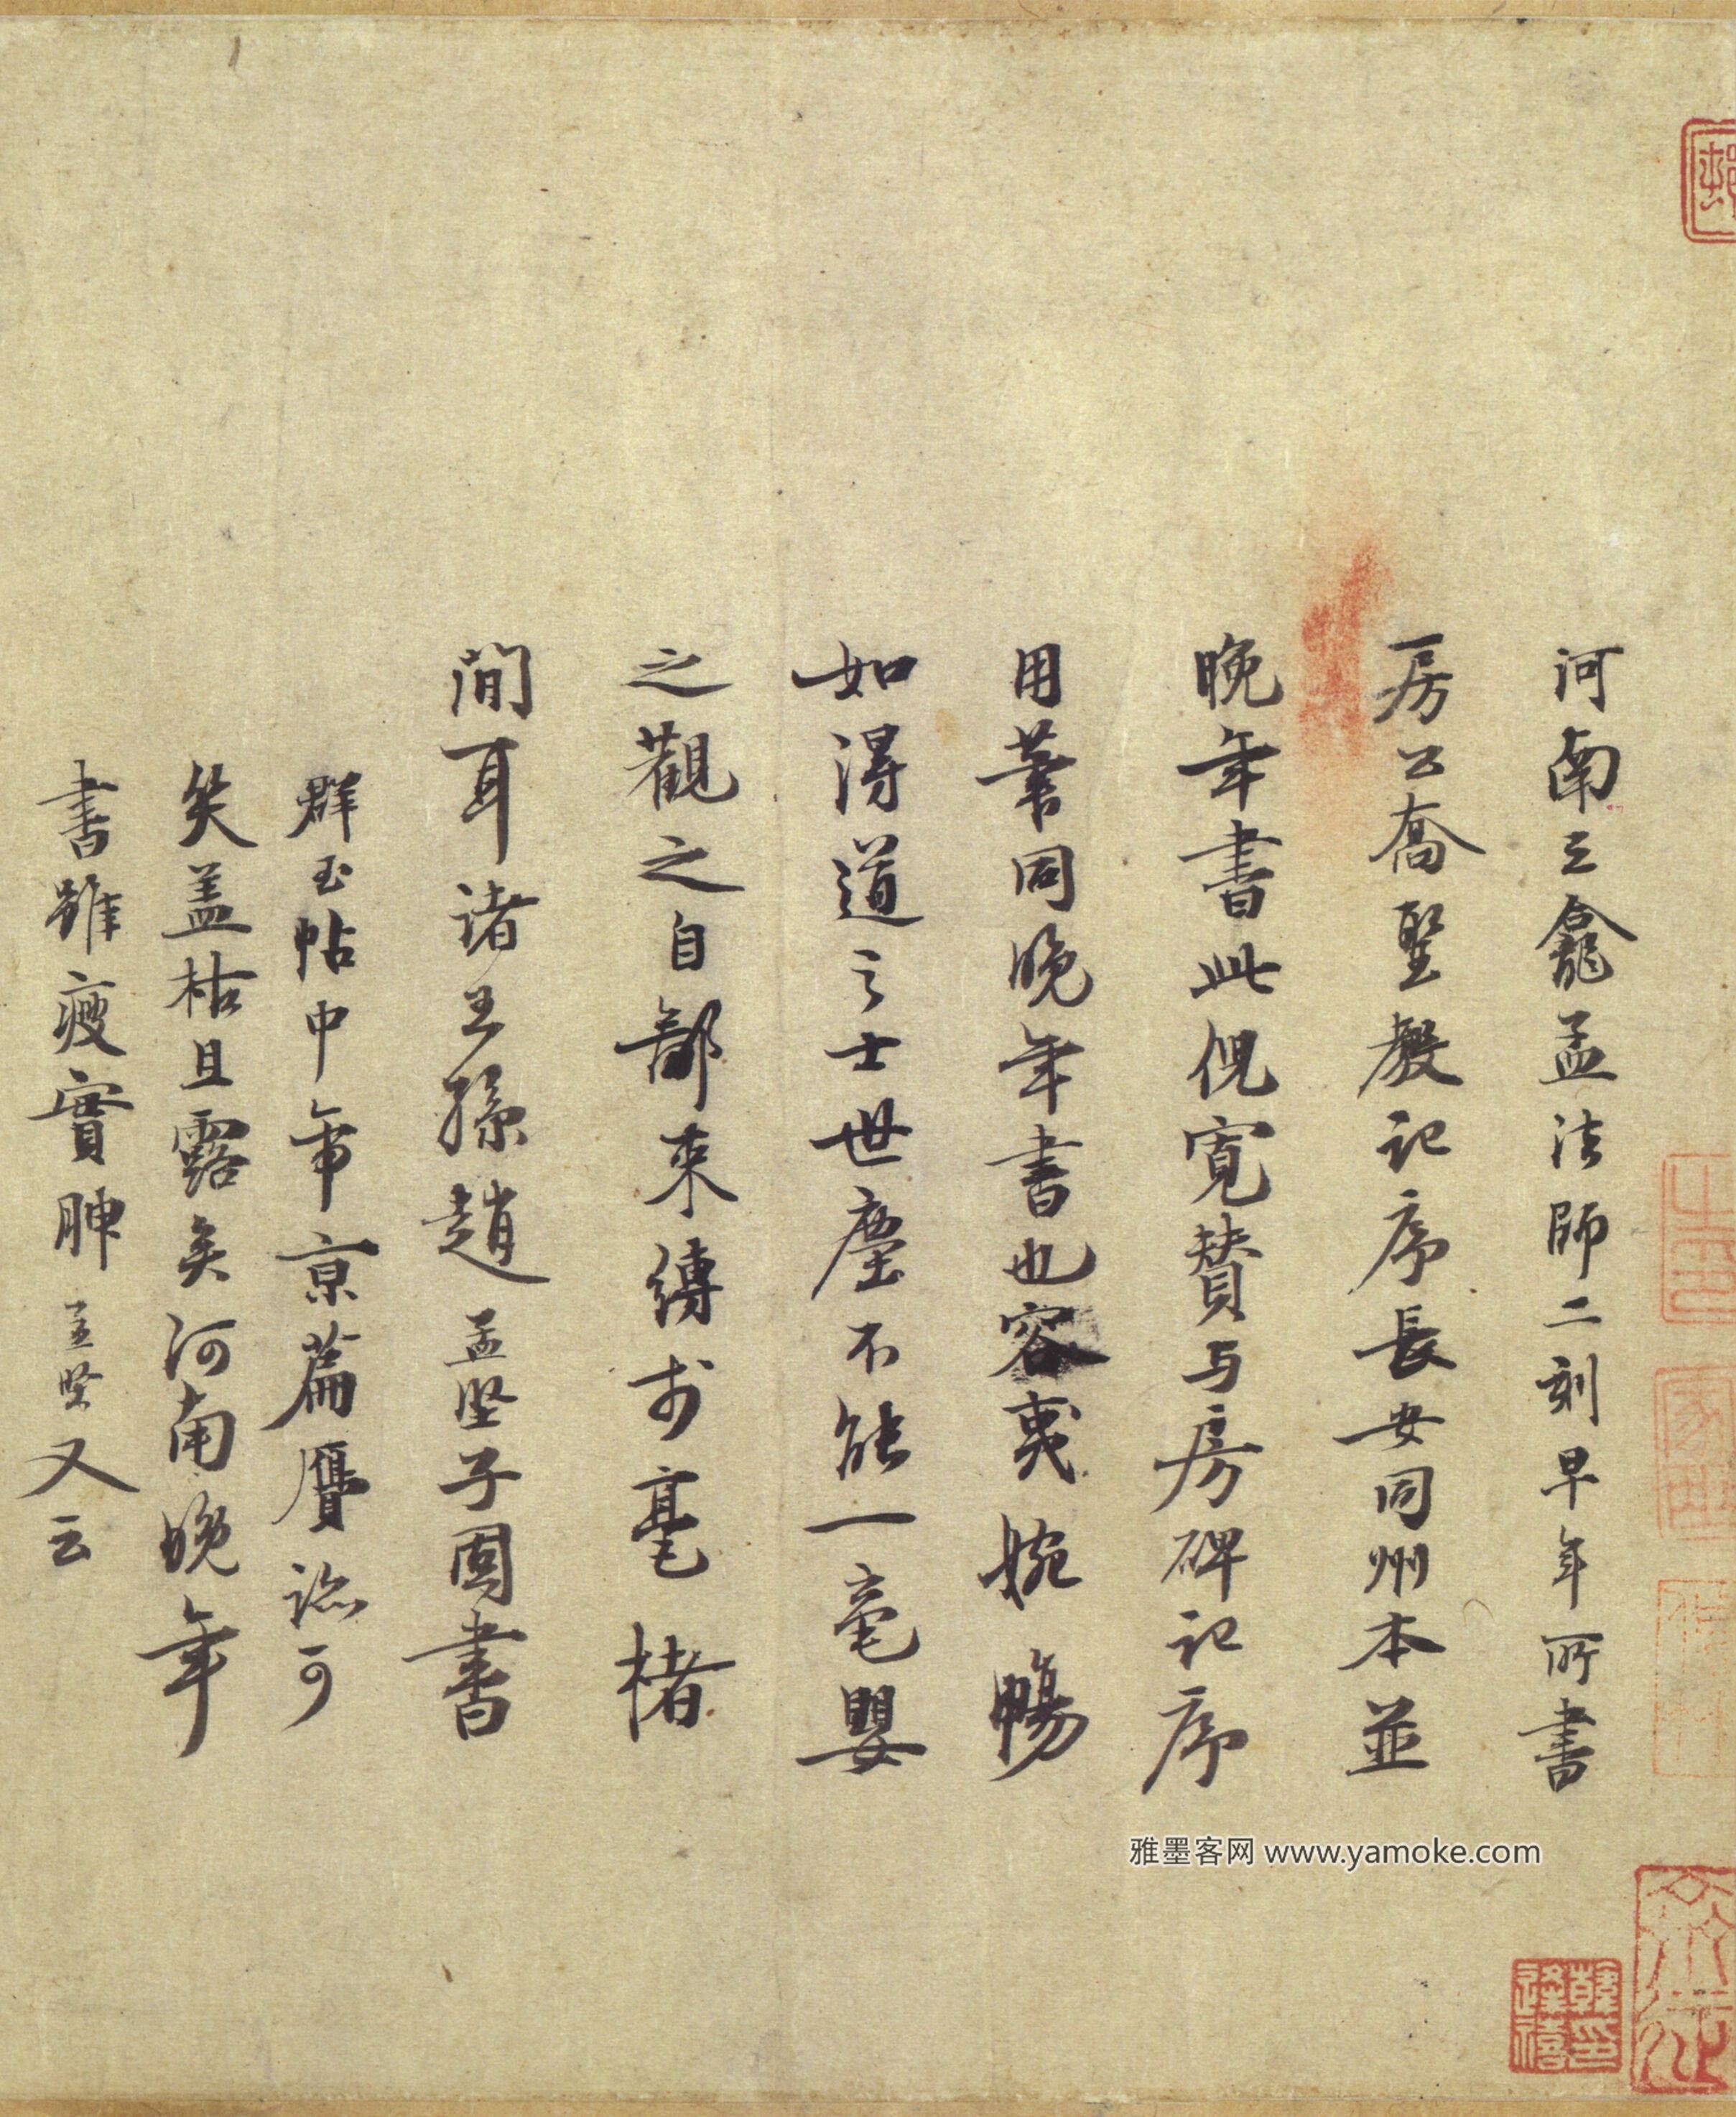 河南三龕孟法師二刻早年所書
房公喬聖教記序長安同州本並
晚年書此倪寬贊与房碑記序
用筆同晚年書也容夷婉暢
如得道之士世塵不能一毫嬰
之觀之自鄙束縛於毫楮
間耳諸王孫趙孟堅子固書
群玉帖中帝京篇贗跡可
笑盖枯且露矣河南晚年
書雖瘦實腴孟堅又云
雅墨客网 www.yamoke.com